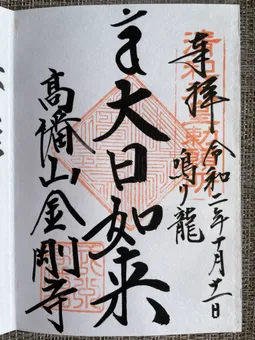 奉拝 令和二年十月十一日
鳴り龍
大日如来
高幡山金剛寺